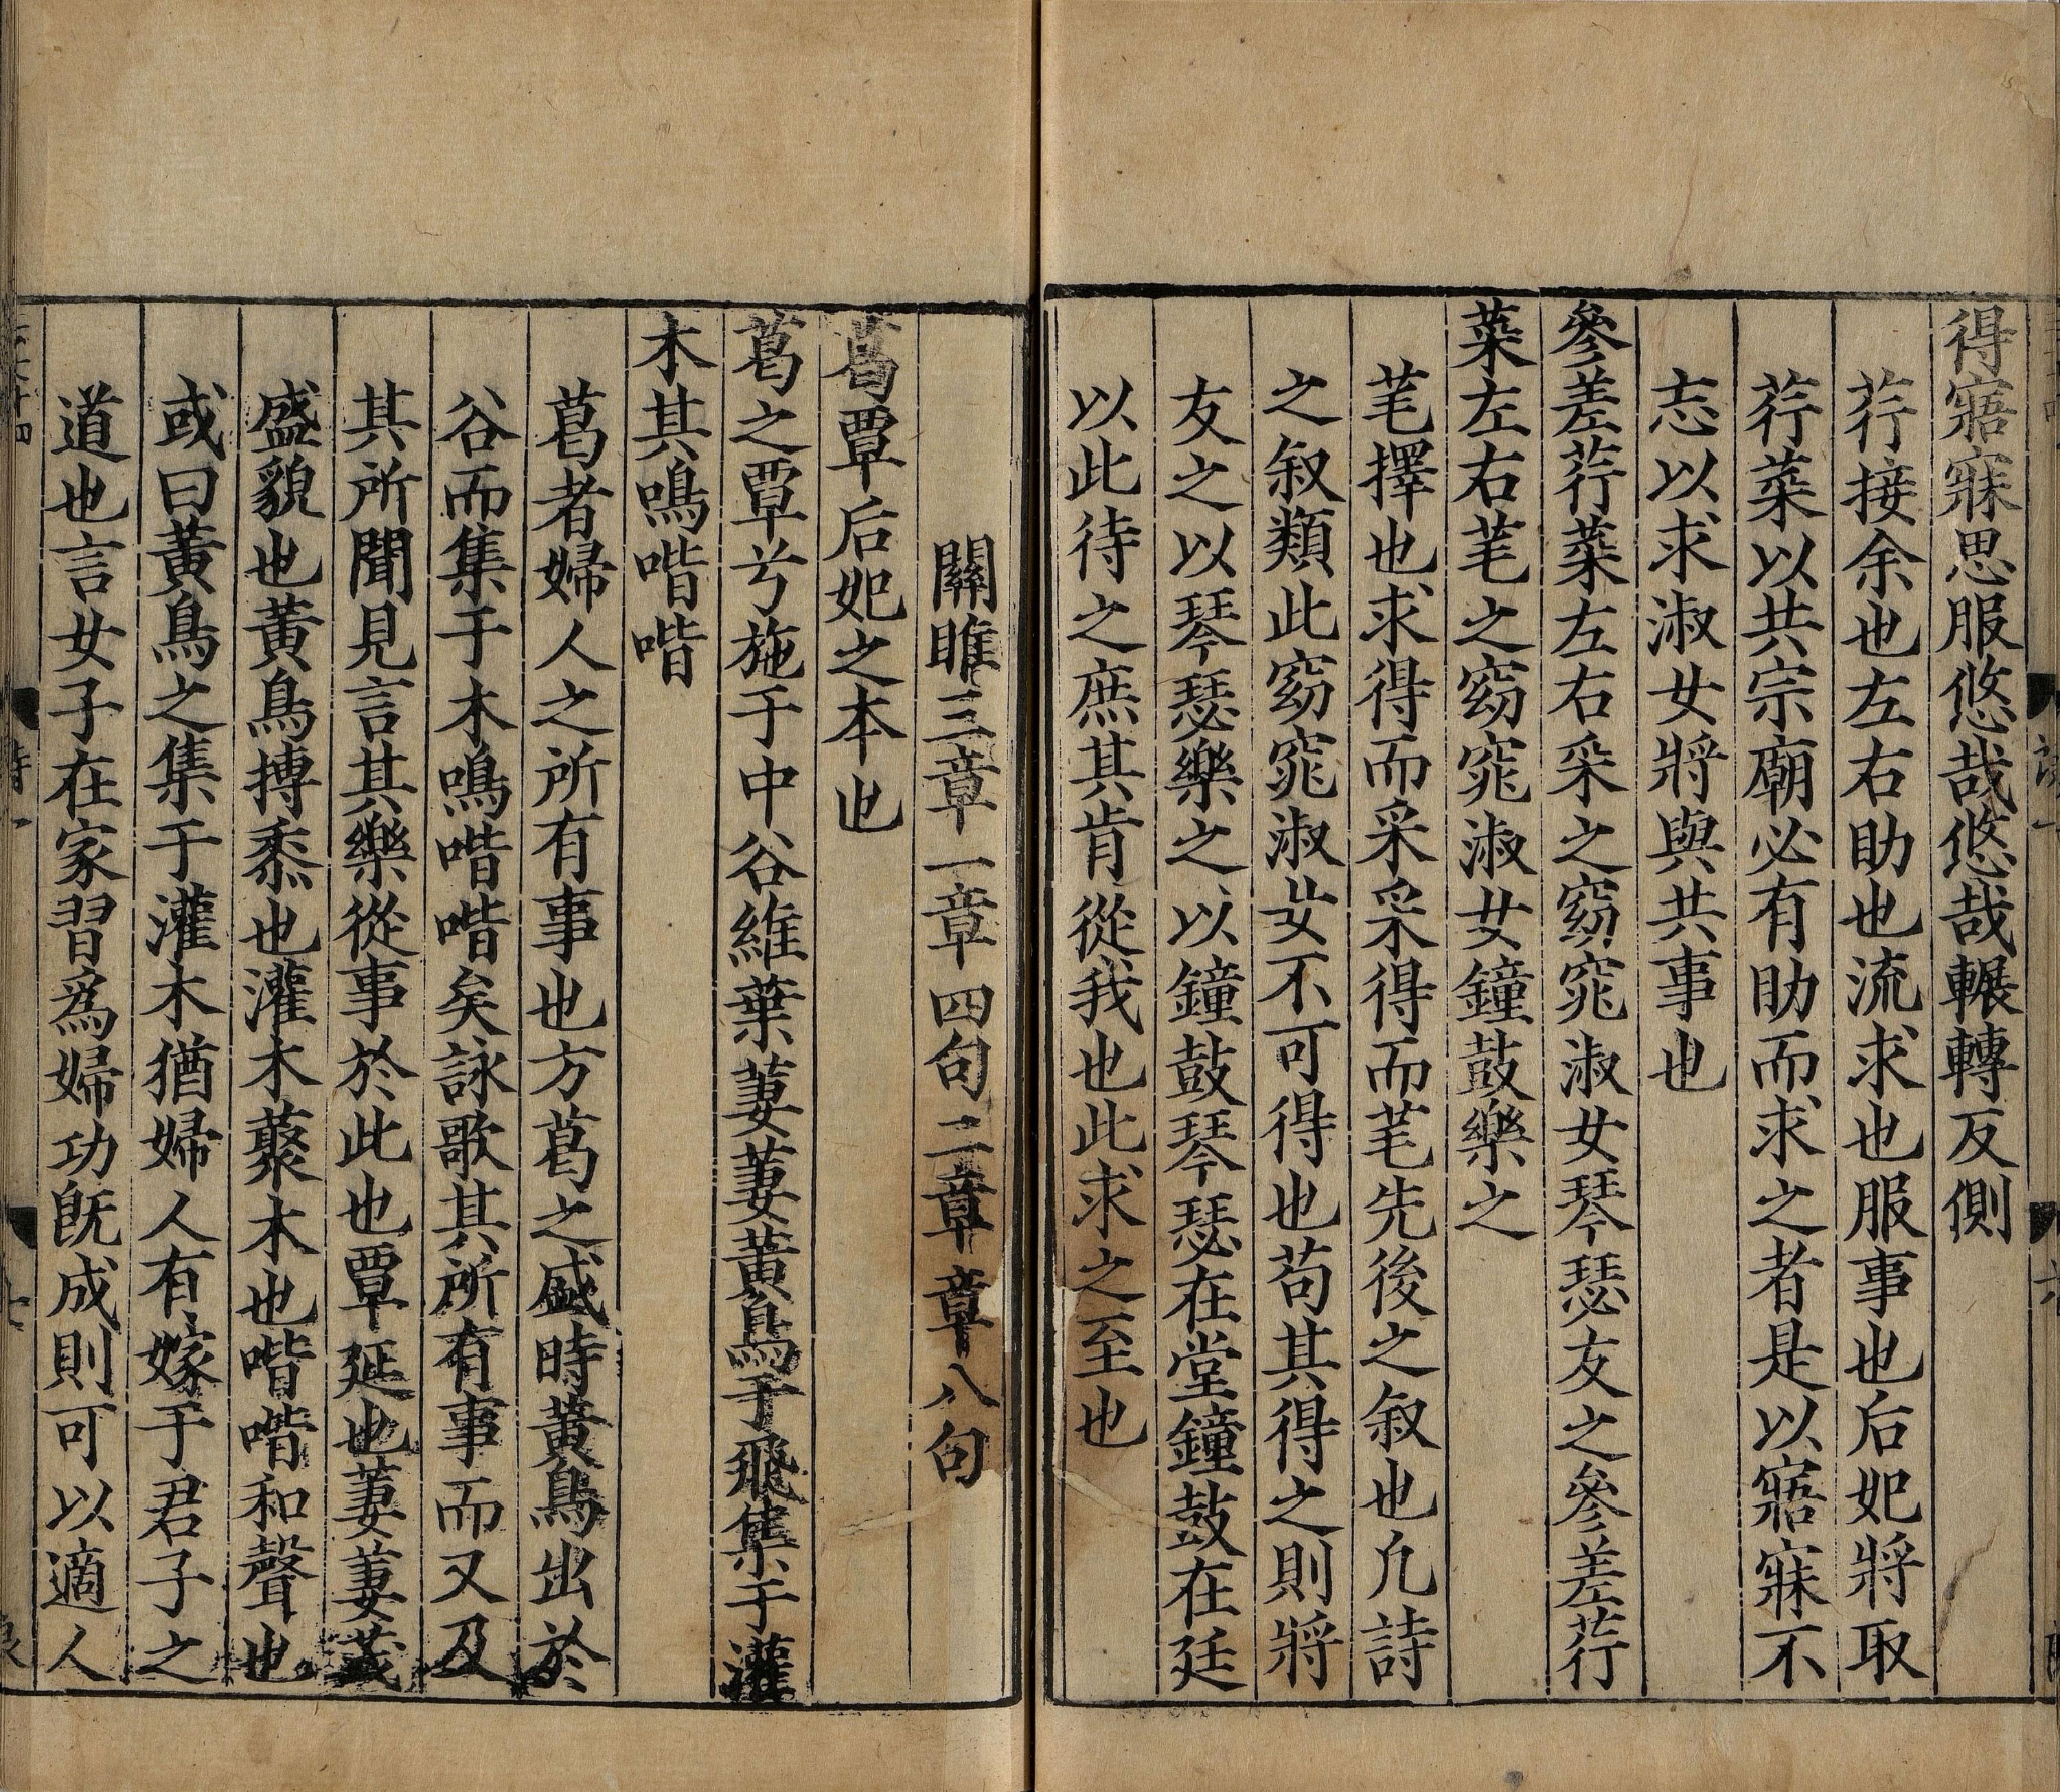 得寤寐思服悠哉悠哉輾轉反側
荇接余也左右助也流求也服事也后妃將取
荇菜以共宗廟必有助而求之者是以寤寐不
忘以求淑女將與共事也
參差荇菜左右采之窈窕淑女琴瑟友之參差荇
菜左右芼之窈窕淑女鐘鼓樂之
芼擇也求得而采采得而芼先後之叙也凡詩
之叙類此窈窕淑女不可得也苟其得之則將
友之以琴瑟樂之以鐘鼓琴瑟在堂鐘鼓在廷
以此待之庶其肯從我也此求之至也
關雎三章一章四句二章章八句
葛覃后妃之本也
葛之覃兮施于中谷維葉萋萋黃鳥于飛集于灌
木其鳴喈喈
葛者婦人之所有事也方葛之盛時黃鳥出於
谷而集于木鳴喈喈矣詠歌其所有事而又及
其所聞見言其樂從事於此也覃延也萋萋茂
盛貌也黃鳥搏黍也灌木藂木也喈喈和聲也
或曰黃鳥之集于灌木猶婦人有嫁于君子之
道也言女子在家習爲婦功旣成則可以適人